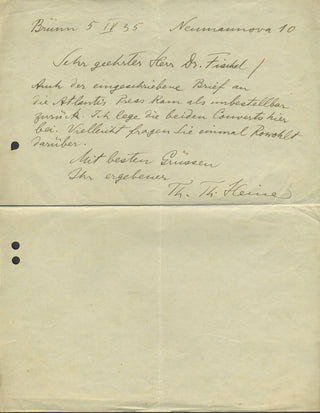 Brünn 5 IX 35 Neumannova 10
Sehr geehrter Herr Dr. Fischel /
Auch der eingeschriebene Brief an
die Atlantis Press kam als unbestellbar
zurück. Ich lege die beiden Couverts hier
bei. Vielleicht fragen Sie einmal Rowohlt
darüber.
Mit besten Grüssen
Ihr ergebener
Th. Th. Heine